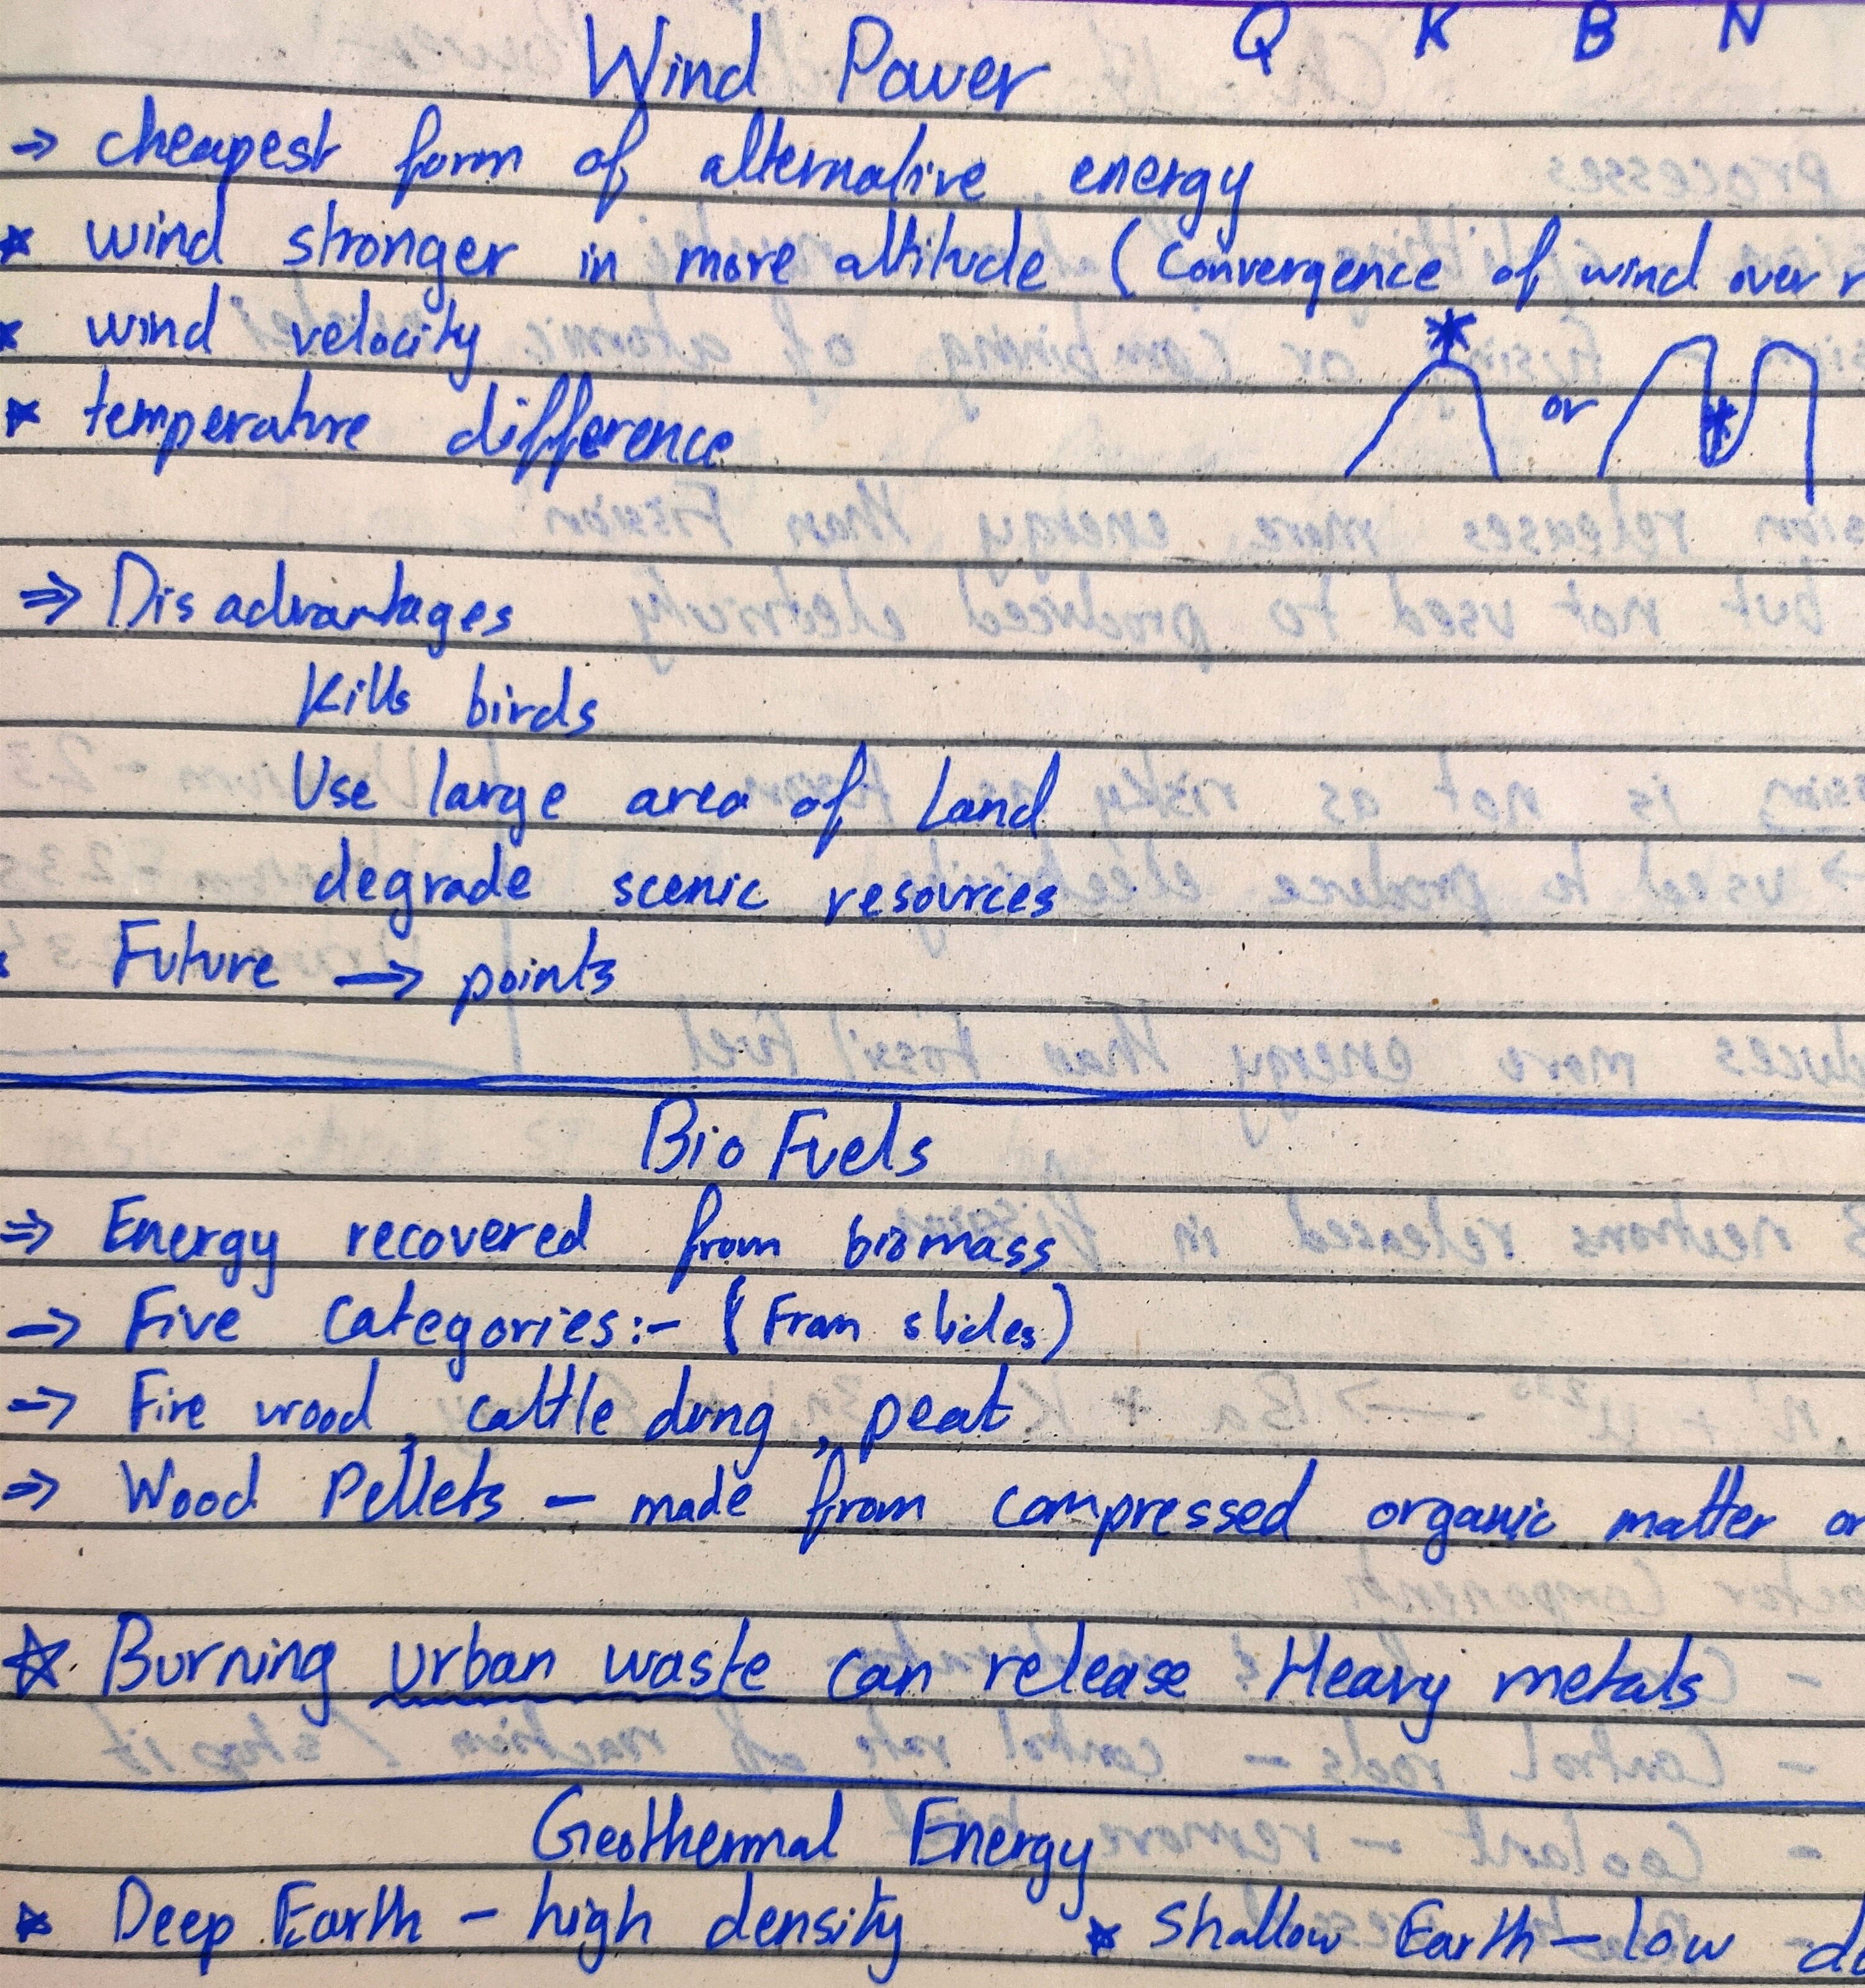 Q K B N
Wind Power
⇒ cheapest form of alternative energy
* wind stronger in more altitude (Convergence of wind over
* wind velocity
* temperature difference
or
⇒ Disadvantages
Kills birds
Use large area of Land
degrade scenic resources
Future → points
Bio Fuels
⇒ Energy recovered from biomass
⇒ Five categories:- (From slides)
⇒ Fire wood, cattle dung, peat
⇒ Wood Pellets - made from compressed organic matter
☆ Burning urban waste can release Heavy metals
Geothermal Energy
* Deep Earth - high density * Shallow Earth - low